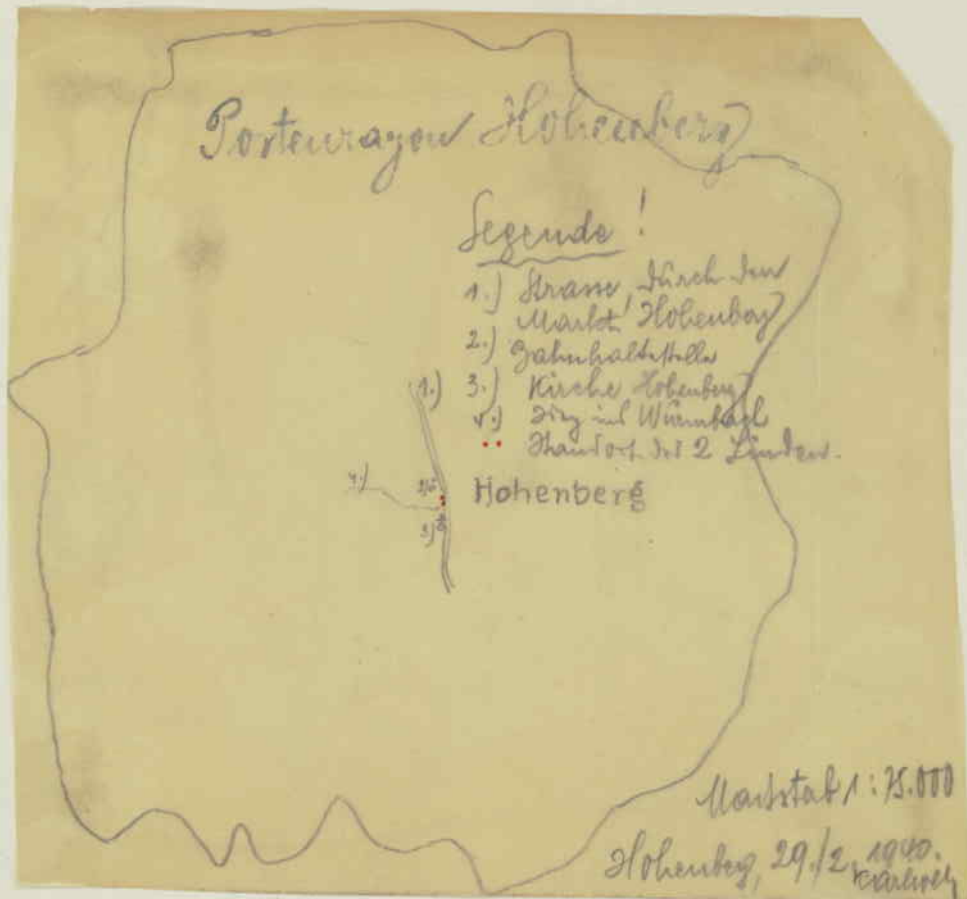 Postenrayon Hohenberg
Legende!
1.) Strasse, durch den
Markt Hohenberg
2.) Bahnhaltestelle
3.) Kirche Hohenberg
4.) Weg ins
.. Standort der 2 Linden.
1.)
4.)
2.)
Hohenberg
3.)
Masstab 1:75.000
Hohenberg, 29./2. 1940.